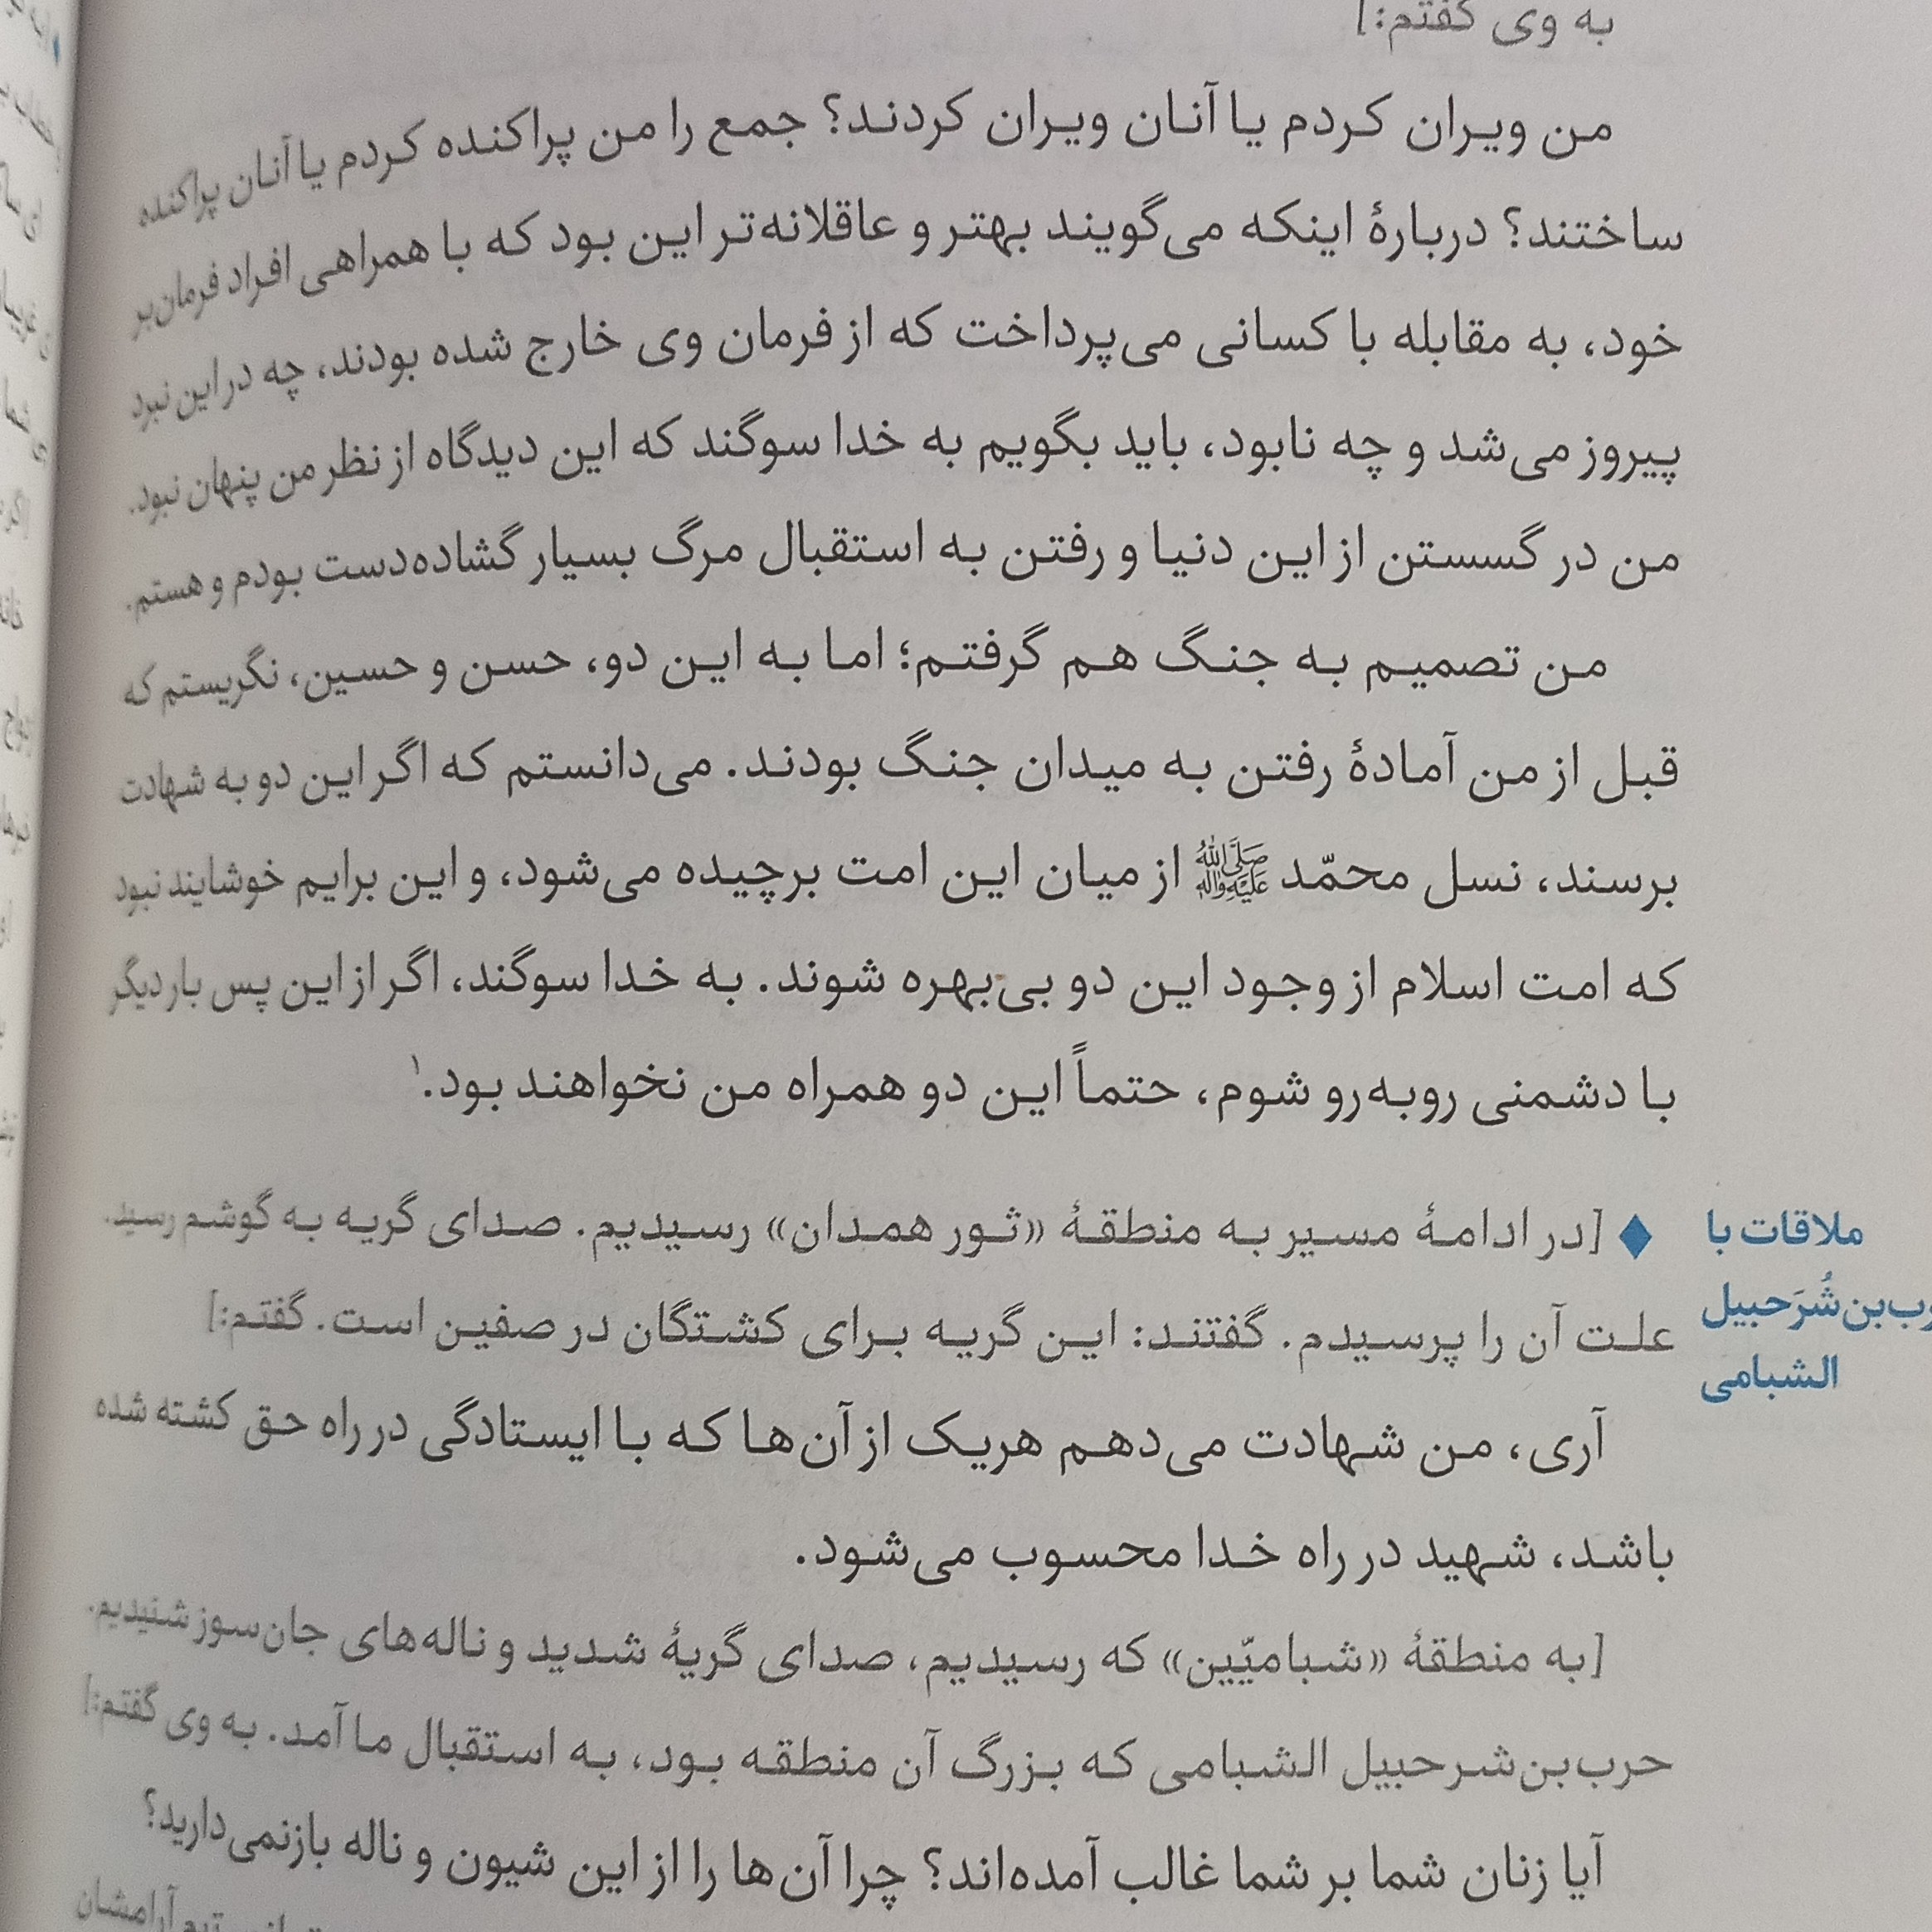 به وی گفتم:]
من ویران کردم یا آنان ویران کردند؟ جمع را من پراکنده کردم یا آنان پراکنده
ساختند؟ دربارهٔ اینکه می‌گویند بهتر و عاقلانه‌تر این بود که با همراهی افراد فرمان‌بر
خود، به مقابله با کسانی می‌پرداخت که از فرمان وی خارج شده بودند، چه در این نبرد
پیروز می‌شد و چه نابود، باید بگویم به خدا سوگند که این دیدگاه از نظر من پنهان نبود.
من در گسستن از این دنیا و رفتن به استقبال مرگ بسیار گشاده‌دست بودم و هستم.
من تصمیم به جنگ هم گرفتم؛ اما به این دو، حسن و حسین، نگریستم که
قبل از من آمادهٔ رفتن به میدان جنگ بودند. می‌دانستم که اگر این دو به شهادت
برسند، نسل محمّد صَلَّی اللهُ عَلَیْهِ وَآلِه از میان این امت برچیده می‌شود، و این برایم خوشایند نبود
که امت اسلام از وجود این دو بی‌بهره شوند. به خدا سوگند، اگر از این پس بار دیگر
با دشمنی روبه‌رو شوم، حتماً این دو همراه من نخواهند بود.۱
ملاقات با
رب‌بن‌شُرَحبیل
الشبامی
♦ [در ادامهٔ مسیر به منطقهٔ «ثور همدان» رسیدیم. صدای گریه به گوشم رسید.
علت آن را پرسیدم. گفتند: این گریه برای کشتگان در صفین است. گفتم:]
آری، من شهادت می‌دهم هریک از آن‌ها که با ایستادگی در راه حق کشته شده
باشد، شهید در راه خدا محسوب می‌شود.
[به منطقهٔ «شبامیّین» که رسیدیم، صدای گریهٔ شدید و ناله‌های جان‌سوز شنیدیم.
حرب‌بن‌شرحبیل الشبامی که بزرگ آن منطقه بود، به استقبال ما آمد. به وی گفتم:]
آیا زنان شما بر شما غالب آمده‌اند؟ چرا آن‌ها را از این شیون و ناله بازنمی‌دارید؟
آرامشان